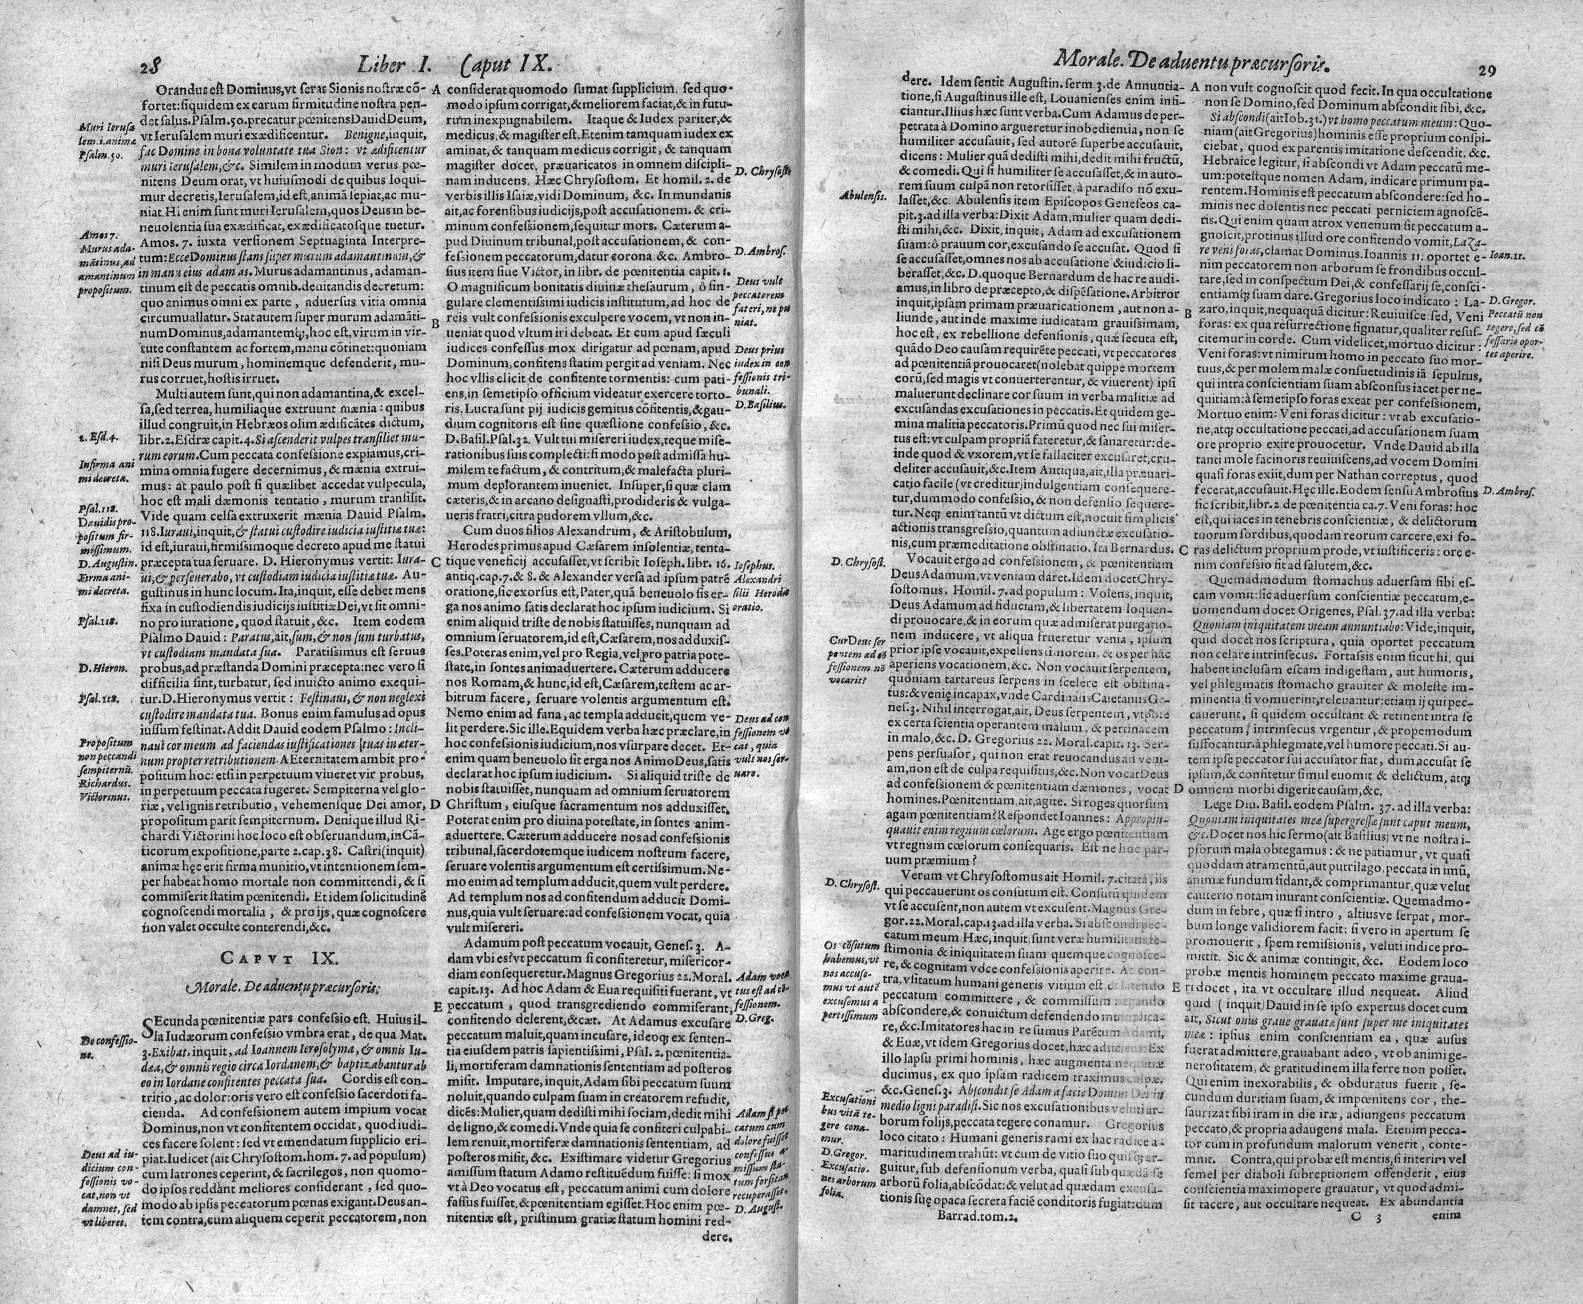 28 Liber I. Caput IX.
Orandus est Dominus, vt seras Sionis nostræ cō-
fortet: siquidem ex earum firmitudine nostra pen-
det salus. Psalm. 50. precatur pœnitens Dauid Deum,
vt Ierusalem muri exædificentur. Benigne, inquit,
fac Domine in bona voluntate tua Sion: vt ædificentur
muri Ierusalem, &c. Similem in modum verus pœ-
nitens Deum orat, vt huiusmodi de quibus loqui-
mur decretis, Ierusalem, id est, animā sepiat, ac mu-
niat. Hi enim sunt muri Ierusalem, quos Deus in be-
neuolentia sua exædificat, exædificatosque tuetur.
Amos. 7. iuxta versionem Septuaginta Interpre-
tum: Ecce Dominus stans super murum adamantinum, &
in manu eius adamas. Murus adamantinus, adaman-
tinum est de peccatis omnib. deuitandis decretum:
quo animus omni ex parte, aduersus vitia omnia
circumuallatur. Stat autem super murum adamāti-
num Dominus, adamantemq;, hoc est, virum in vir-
tute constantem ac fortem, manu cōtinet: quoniam
nisi Deus murum, hominemque defenderit, mu-
rus corruet, hostis irruet.
Multi autem sunt, qui non adamantina, & excel-
sa, sed terrea, humiliaque extruunt mænia: quibus
illud congruit, in Hebræos olim ædificātes dictum,
libr. 2. Esdræ capit. 4. Si ascenderit vulpes transiliet mu-
rum eorum. Cum peccata confessione expiamus, cri-
mina omnia fugere decernimus, & mænia extrui-
mus: at paulo post si quælibet accedat vulpecula,
hoc est mali dæmonis tentatio, murum transilit.
Vide quam celsa extruxerit mænia Dauid Psalm.
118. Iuraui, inquit, & statui custodire iudicia iustitiæ tuæ:
id est, iuraui, firmissimoque decreto apud me statui
præcepta tua seruare. D. Hieronymus vertit: Iura-
ui, & perseuerabo, vt custodiam iudicia iustitiæ tuæ. Au-
gustinus in hunc locum. Ita, inquit, esse debet mens
fixa in custodiendis iudicijs iustitiæ Dei, vt sit omni-
no pro iuratione, quod statuit, &c. Item eodem
Psalmo Dauid: Paratus, ait, sum, & non sum turbatus,
vt custodiam mandata sua. Paratissimus est seruus
probus, ad præstanda Domini præcepta: nec vero si
difficilia sint, turbatur, sed inuicto animo exequi-
tur. D. Hieronymus vertit: Festinaui, & non neglexi
custodire mandata tua. Bonus enim famulus ad opus
iussum festinat. Addit Dauid eodem Psalmo: Incli-
naui cor meum ad faciendas iustificationes tuas in æter-
num propter retributionem. AEternitatem ambit pro-
positum hoc: etsi in perpetuum viueret vir probus,
in perpetuum peccata fugeret. Sempiterna vel glo-
riæ, vel ignis retributio, vehemensque Dei amor,
propositum parit sempiternum. Denique illud Ri-
chardi Victorini hoc loco est obseruandum, in Cā-
ticorum expositione, parte 2. cap. 38. Castri (inquit)
animæ hęc erit firma munitio, vt intentionem sem-
per habeat homo mortale non committendi, & si
commiserit statim pœnitendi. Et idem solicitudinē
cognoscendi mortalia, & pro ijs, quæ cognoscere
non valet occulte conterendi, &c.
CAPVT IX.
Morale. De aduentu præcursoris.
SEcunda pœnitentiæ pars confessio est. Huius il-
la Iudæorum confessio vmbra erat, de qua Mat.
3. Exibat. inquit, ad Ioannem Ierosolyma, & omnis Iu-
dæa, & omnis regio circa Iordanem, & baptizabantur ab
eo in Iordane confitentes peccata sua. Cordis est con-
tritio, ac dolor: oris vero est confessio sacerdoti fa-
cienda. Ad confessionem autem impium vocat
Dominus, non vt confitentem occidat, quod iudi-
ces facere solent: sed vt emendatum supplicio eri-
piat. Iudicet (ait Chysostom. hom. 7. ad populum)
cum latrones ceperint, & sacrilegos, non quomo-
do ipsos reddāt meliores considerant, sed quo-
modo ab ipsis peccatorum pœnas exigant. Deus an-
tem contra, cum aliquem ceperit peccatorem, non
Muri Ierusa
lem. i. anima
Psalm. 50.
Amos 7.
Murus ada-
mātinus, ad
amantinum
propositum.
2. Esd. 4.
Infirma ani
mi decreta.
Psal. 118.
Dauidis pro-
positum fir-
missimum.
D. Augustin.
Firma ani-
mi decreta.
Psal. 118.
D. Hieron.
Psal. 118.
Propositum
non peccandi
sempiternū.
Richardus.
Victorinus.
De confessio-
ne.
Deus ad iu-
dicium con-
fessionis vo-
cat, non vt
damnet, sed
vt liberet.
A considerat quomodo sumat supplicium. sed quo-
modo ipsum corrigat, & meliorem faciat, & in futu-
rum inexpugnabilem. Itaque & Iudex pariter, &
medicus, & magister est. Etenim tamquam iudex ex
aminat, & tanquam medicus corrigit, & tanquam
magister docet, præuaricatos in omnem discipli-
nam inducens. Hæc Chrysostom. Et homil. 2. de
verbis illis Isaiæ, vidi Dominum, &c. In mundanis
ait, ac forensibus iudicijs, post accusationem. & cri-
minum confessionem, sequitur mors. Cæterum a-
pud Diuinum tribunal, post accusationem, & con-
fessionem peccatorum, datur corona. &c. Ambro-
sius item siue Victor, in libr. de pœnitentia capit. 1.
O magnificum bonitatis diuinæ thesaurum, ô sin-
gulare clementissimi iudicis institutum, ad hoc de
B reis vult confessionis exculpere vocem, vt non in-
ueniat quod vltum iri debeat. Et cum apud sæculi
iudices confessus mox dirigatur ad pœnam, apud
Dominum, confitens statim pergit ad veniam. Nec
hoc vllis elicit de confitente tormentis: cum pati-
ens, in semetipso officium videatur exercere torto-
ris. Lucra sunt pij iudicis gemitus cōfitentis, & gau-
dium cognitoris est sine quæstione confessio, &c.
D. Basil. Psal. 32. Vult tui misereri iudex, teque mise-
rationibus suis complecti: si modo post admissa hu-
milem te factum, & contritum, & malefacta pluri-
mum deplorantem inueniet. Insuper, si quæ clam
cæteris, & in arcano designasti, prodideris & vulga-
ueris fratri, citra pudorem vllum, &c.
Cum duos filios Alexandrum, & Aristobulum,
Herodes primus apud Cæsarem insolentiæ, tenta-
C tique veneficij accusasset, vt scribit Ioseph. libr. 16.
antiq. cap. 7. & 8. & Alexander versa ad ipsum patrē
oratione, sic exorsus est, Pater, quā beneuolo sis er-
ga nos animo satis declarat hoc ipsum iudicium. Si
enim aliquid triste de nobis statuisses, nunquam ad
omnium seruatorem, id est, Cæsarem, nos adduxis-
ses. Poteras enim, vel pro Regia, vel, pro patria pote-
state, in sontes animaduertere. Cæterum adducere
nos Romam, & hunc, id est, Cæsarem, testem ac ar-
bitrum facere, seruare volentis argumentum est.
Nemo enim ad fana, ac templa adducit, quem ve-
lit perdere. Sic ille. Equidem verba hæc præclare, in
hoc confessionis iudicium, nos vsurpare decet. Et-
enim quam beneuolo sit erga nos Animo Deus, satis
declarat hoc ipsum iudicium. Si aliquid triste de
nobis statuisset, nunquam ad omnium seruatorem
D Christum, eiusque sacramentum nos adduxisset.
Poterat enim pro diuina potestate, in sontes anim-
aduertere. Cæterum adducere nos ad confessionis
tribunal, sacerdotemque iudicem nostrum facere,
seruare volentis argumentum est certissimum. Ne-
mo enim ad templum adducit, quem vult perdere.
Ad templum nos ad confitendum adducit Domi-
nus, quia vult seruare: ad confessionem vocat, quia
vult misereri.
Adamum post peccatum vocauit, Genes. 3. A-
dam vbi es? vt peccatum si confiteretur, misericor-
diam consequeretur. Magnus Gregorius 22. Moral.
capit. 13. Ad hoc Adam & Eua requisiti fuerant, vt
E peccatum, quod transgrediendo commiserant,
confitendo delerent, &cæt. At Adamus excusare
peccatum maluit, quam incusare, ideoq; ex senten-
tia eiusdem patris sapientissimi, Psal. 2. pœnitentia-
li, mortiferam damnationis sententiam ad posteros
misit. Imputare, inquit, Adam sibi peccatum suum
noluit, quando culpam suam in creatorem refudit,
dicēs: Mulier, quam dedisti mihi sociam, dedit mihi
de ligno, & comedi. Vnde quia se confiteri culpabi-
lem renuit, mortiferæ damnationis sententiam, ad
posteros misit, &c. Existimare videtur Gregorius
amissum statum Adamo restituēdum fuisse: si mox
vt à Deo vocatus est, peccatum animi cum dolore
fassus fuisset, & pœnitentiam egisset. Hoc enim pœ-
nitentiæ est, pristinum gratiæ statum homini red-
dere.
D. Chrysost.
D. Ambros.
Deus vult
peccatorem
fateri, ne pu
niat.
Deus prius
iudex in con
fessionis tri-
bunali.
D. Basilius.
Iosephus.
Alexandri
filii Herodis
oratio.
Deus ad con
fessionem vo
cat, quia
vult nos ser-
uare.
Adam voca
tus est ad cō-
fessionem.
D. Greg.
Adam si pec
catum cum
dolore fuisset
confessus a-
missum sta-
tum forsitan
recuperasset.
D. August.
Morale. De aduentu præcursoris. 29
dere. Idem sentit Augustin. serm 3. de Annuntia-
tione, si Augustinus ille est, Louanienses enim infi-
ciantur. Illius hæc sunt verba. Cum Adamus de per-
petrata à Domino argueretur inobedientia, non se
humiliter accusauit, sed autorē superbe accusauit,
dicens: Mulier quā dedisti mihi, dedit mihi fructū,
& comedi. Qui si humiliter se accusasset, & in auto-
rem suum culpā non retorsisset, à paradiso nō exu-
lasset, &c. Abulensis item Episcopos Geneseos ca-
pit. 3. ad illa verba: Dixit Adam, mulier quam dedi-
sti mihi, &c. Dixit, inquit, Adam ad excusationem
suam: ô prauum cor, excusando se accusat. Quod si
se accusasset, omnes nos ab accusatione & iudicio li-
berasset, &c. D. quoque Bernardum de hac re audi-
amus, in libro de præcepto, & dispēsatione. Arbitror
inquit, ipsam primam præuaricationem, aut non a-
liunde, aut inde maxime iudicatam grauissimam,
hoc est, ex rebellione defensionis, quæ secuta est,
quādo Deo causam requirēte peccati, vt peccatores
ad pœnitentiā prouocaret (nolebat quippe mortem
eorū, sed magis vt conuerterentur, & viuerent) ipsi
maluerunt declinare cor suum in verba malitiæ ad
excusandas excusationes in peccatis. Et quidem ge-
mina malitia peccatoris. Primū quod nec sui miser-
tus est: vt culpam propriā fateretur, & sanaretur: de-
inde quod & vxorem, vt se fallaciter excusaret, cru-
deliter accusauit, &c. Item Antiqua, ait, illa præuari-
catio facile (vt creditur) indulgentiam consequere-
tur, dummodo confessio, & non defensio sequere-
tur. Neq; enim tantū vt dictum est, nocuit simplicis
actionis transgressio, quantum adiunctæ excusatio-
nis, cum præmeditatione obstinatio. Ita Bernardus.
Vocauit ergo ad confessionem, & pœnitentiam
Deus Adamum, vt veniam daret. Idem docet Chry-
sostomus. Homil. 7. ad populum: Volens, inquit,
Deus Adamum ad fiduciam, & libertatem loquen-
di prouocare, & in eorum quæ admiserat purgatio-
nem inducere, vt aliqua frueretur venia, ipsum
prior ipse vocauit, expellens timorem, & os per hæc
aperiens vocationem, &c. Non vocauit serpentem,
quoniam tartareus serpens in scelere est obstina-
tus: & venię incapax, vnde Cardinalis Caietanus Ge-
nes. 3. Nihil interrogat, ait, Deus serpentem, vtpote
ex certa scientia operantem malum, & pertinacem
in malo, &c. D. Gregorius 22. Moral. capit. 13. Ser-
pens persuasor, qui non erat reuocandus ad veni-
am, non est de culpa requisitus, &c. Non vocat Deus
ad confessionem & pœnitentiam dæmones, vocat
homines. Pœnitentiam, ait, agite. Si roges quorsum
agam pœnitentiam? Respondet Ioannes: Appropin-
quauit enim regnum cælorum. Age ergo pœnitentiam
vt regnum cœlorum consequaris. Est ne hoc par-
uum præmium?
Verum vt Chrysostomus ait Homil. 7. citata, iis
qui peccauerunt os consutum est. Consutū quidem
vt se accusent, non autem vt excusent. Magnus Gre-
gor. 22. Moral. cap. 13. ad illa verba. Si abscondi pec-
catum meum Hæc, inquit, sunt veræ humilitatis te-
stimonia & iniquitatem suam quemque cognosce-
re, & cognitam voce confessionis aperire. At con-
tra, vsitatum humani generis vitium est & latendo
peccatum committere, & commissum negando
abscondere, & conuictum defendendo multiplica-
re, &c. Imitatores hac in re sumus Parētum Adami,
& Euæ, vt idem Gregorius docet, hæc adiiciens: Ex
illo lapsu primi hominis, hæc augmenta nequitiæ
ducimus, ex quo ipsam radicem traximus culpæ,
&c. Genes. 3. Abscondit se Adam a facie Domini Dei in
medio ligni paradisi. Sic nos excusationibus veluti ar-
borum folijs, peccata tegere conamur. Gregorius
loco citato: Humani generis rami ex hac radice a-
maritudinem trahūt: vt cum de vitio suo quisq; ar-
guitur, sub defensionum verba, quasi sub quædā se
arborū folia, abscōdat: & velut ad quædam excusa-
tionis suę opaca secreta faciē conditoris fugiat: dum
Barrad. tom. 2.
Abulensis.
D. Chrysost.
Cur Deus ser
pentem ad cō
fessionem nō
vocarit?
D. Chrysost.
Os cōsutum
habemus, vt
nos accuse-
mus vt autē
excusemus a
pertissimum
Excusationi
bus vitā te-
gere cona-
mur.
D. Gregor.
Excusatio-
nes arborum
folia.
A non vult cognoscit quod fecit. In qua occultatione
non se Domino, sed Dominum abscondit sibi, &c.
Si abscondi (ait Iob. 31.) vt homo peccatum meum: Quo-
niam (ait Gregorius) hominis esse proprium conspi-
ciebat, quod ex parentis imitatione descendit. &c.
Hebraice legitur, si abscondi vt Adam peccatū me-
um: potestque nomen Adam, indicare primum pa-
rentem. Hominis est peccatum abscondere: sed ho-
minis nec dolentis nec peccati perniciem agnoscē-
tis. Qui enim quam atrox venenum sit peccatum a-
gnoscit, protinus illud ore confitendo vomit, Laza-
re veni foras, clamat Dominus. Ioannis 11. oportet e-
nim peccatorem non arborum se frondibus occul-
tare, sed in conspectum Dei, & confessarij se, consci-
entiamq; suam dare. Gregorius loco indicato: La-
B zaro, inquit, nequaquā dicitur: Reuiuisce sed, Veni
foras: ex qua resurrectione signatur, qualiter resus-
citemur in corde. Cum videlicet, mortuo dicitur:
Veni foras: vt nimirum homo in peccato suo mor-
tuus, & per molem malæ consuetudinis iā sepultus,
qui intra conscientiam suam absconsus iacet per ne-
quitiam: à semetipso foras exeat per confessionem,
Mortuo enim: Veni foras dicitur: vt ab excusatio-
ne, atq; occultatione peccati, ad accusationem suam
ore proprio exire prouocetur. Vnde Dauid ab illa
tanti mole facinoris reuiuiscens, ad vocem Domini
quasi foras exiit, dum per Nathan correptus, quod
fecerat, accusauit. Hęc ille. Eodem sensu Ambrosius
sic scribit, libr. 2. de pœnitentia ca. 7. Veni foras: hoc
est, qui iaces in tenebris conscientiæ, & delictorum
tuorum sordibus, quodam reorum carcere, exi fo-
C ras delictum proprium prode, vt iustificeris: ore e-
nim confessio fit ad salutem, &c.
Quemadmodum stomachus aduersam sibi es-
cam vomit: sic aduersum conscientiæ peccatum, e-
uomendum docet Origenes, Psal. 37. ad illa verba:
Quoniam iniquitatem meam annuntiabo: Vide, inquit,
quid docet nos scriptura, quia oportet peccatum
non celare intrinsecus. Fortassis enim sicut hi, qui
habent inclusam escam indigestam, aut humoris,
vel phlegmatis stomacho grauiter & moleste im-
minentia si vomuerint, releuantur: etiam ij qui pec-
cauerunt, si quidem occultant & retinent intra se
peccatum, intrinsecus vrgentur, & propemodum
suffocantur à phlegmate, vel humore peccati. Si au-
tem ipse peccator sui accusator fiat, dum accusat se
ipsum, & confitetur simul euomit & delictum, atq;
D omnem morbi digerit causam, &c.
Lege Diu. Basil. eodem Psalm. 37. ad illa verba:
Quoniam iniquitates meæ supergressæ sunt caput meum,
&c. Docet nos hic sermo (ait Basilius) vt ne nostra i-
psorum mala obtegamus: & ne patiamur, vt quasi
quoddam atramentū, aut putrilago, peccata in imū,
animæ fundum sidant, & comprimantur, quæ velut
cauterio notam inurant conscientiæ. Quemadmo-
dum in febre, quæ si intro, altiusve serpat, mor-
bum longe validiorem facit: si vero in apertum se
promouerit, spem remissionis, veluti indice pro-
mittit. Sic & animæ contingit, &c. Eodem loco
probæ mentis hominem peccato maxime graua-
E ri docet, ita vt occultare illud nequeat. Aliud
quid (inquit) Dauid in se ipso expertus docet cum
ait, Sicut onus graue grauatæ sunt super me iniquitates
meæ: ipsius enim conscientiam ea, quæ ausus
fuerat admittere, grauabant adeo, vt ob animi ge-
nerositatem, & gratitudinem illa ferre non posset.
Qui enim inexorabilis, & obduratus fuerit, se-
cundum duritiam suam, & impœnitens cor, the-
saurizat sibi iram in die iræ, adiungens peccatum
peccato, & propria adaugens mala. Etenim pecca-
tor cum in profundum malorum venerit, conte-
mnit. Contra, qui probæ est mentis, si interim vel
semel per diaboli subreptionem offenderit, eius
conscientia maximopere grauatur, vt quod admi-
sit tacere, aut occultare nequeat. Ex abundantia
C 3 enim
Ioan. 11.
D. Gregor.
Peccatū non
tegere, sed cō
fessario opor-
tet aperire.
D. Ambros.